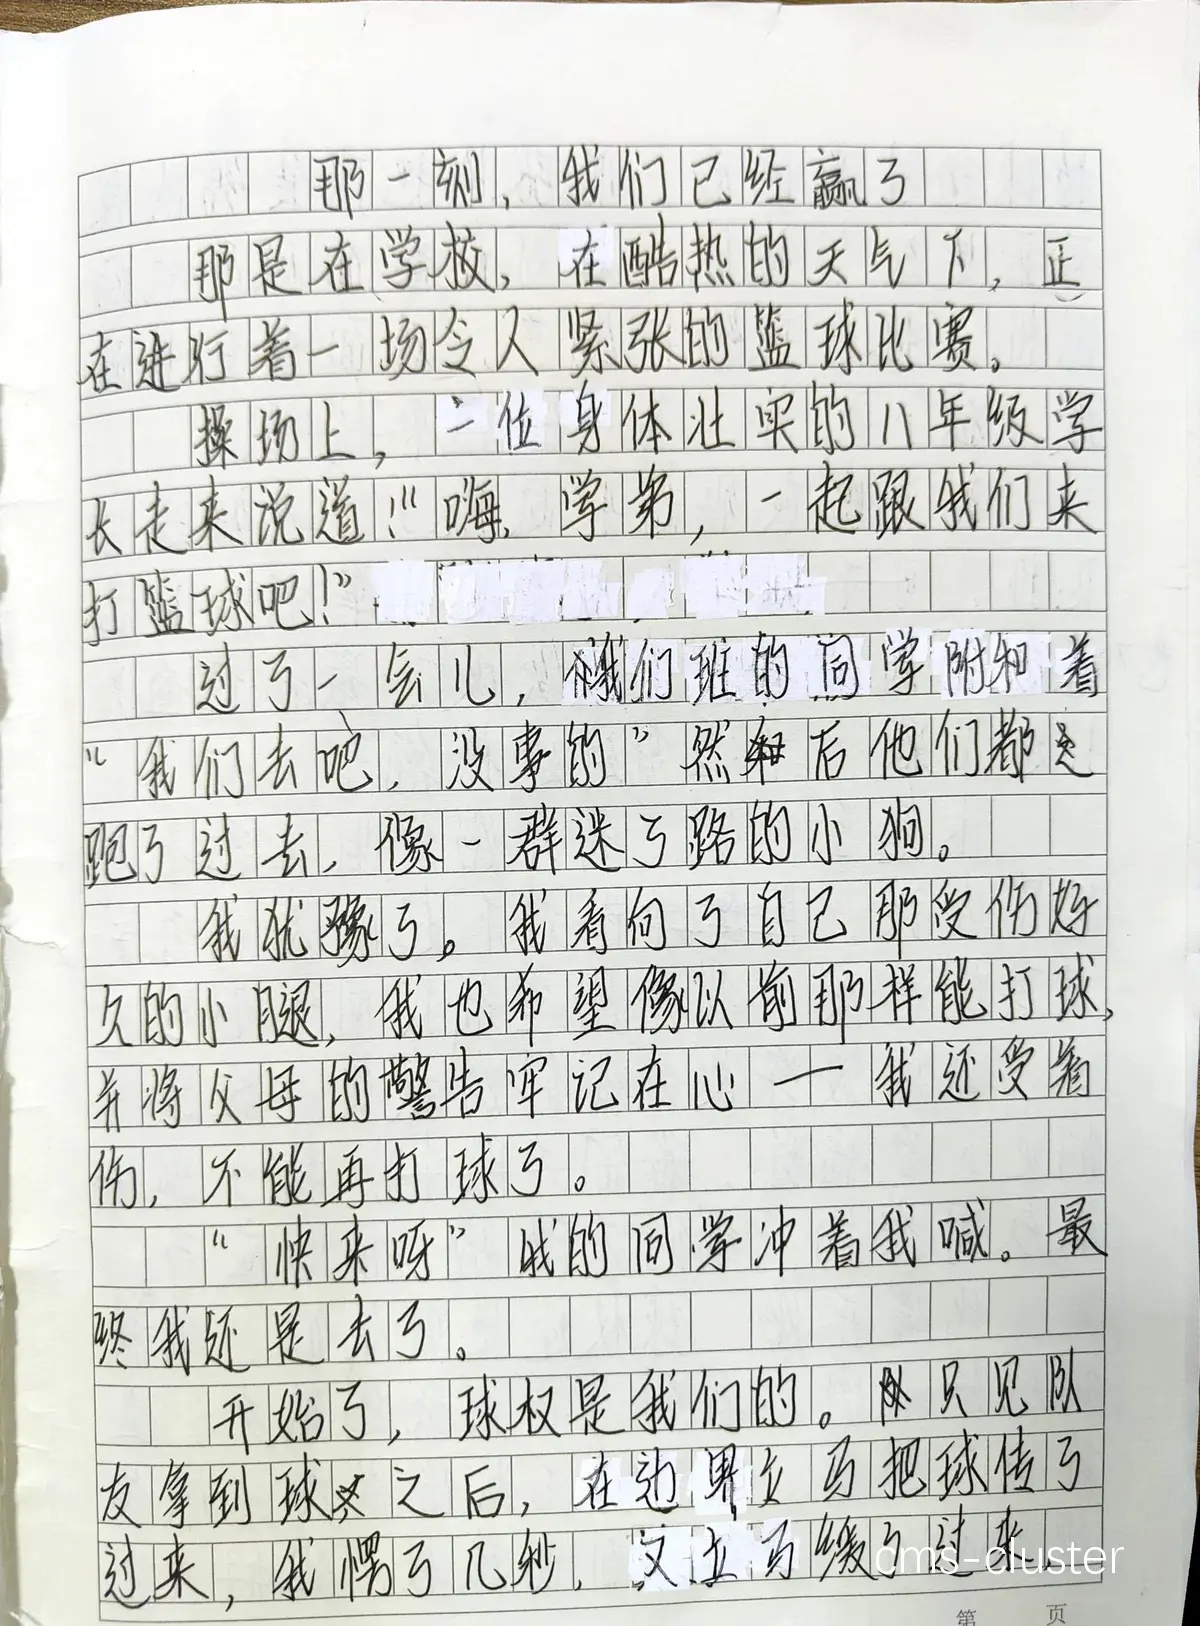 那一刻，我们已经赢了
那是在学校，在酷热的天气下，正
在进行着一场令人紧张的篮球比赛。
操场上，二位身体壮实的八年级学
长走来说道！“嗨，学弟，一起跟我们来
打篮球吧！”
过了一会儿，我们班的同学附和着
“我们去吧，没事的”然后他们都
跑了过去，像一群迷了路的小狗。
我犹豫了。我看向了自己那受伤好
久的小腿，我也希望像以前那样能打球，
并将父母的警告牢记在心——我还受着
伤，不能再打球了。
“快来呀”我的同学冲着我喊。最
终我还是去了。
开始了，球权是我们的。只见队
友拿到球之后，在边界立马把球传了
过来，我愣了几秒，又立马缓了过来
cms-cluster
第 页